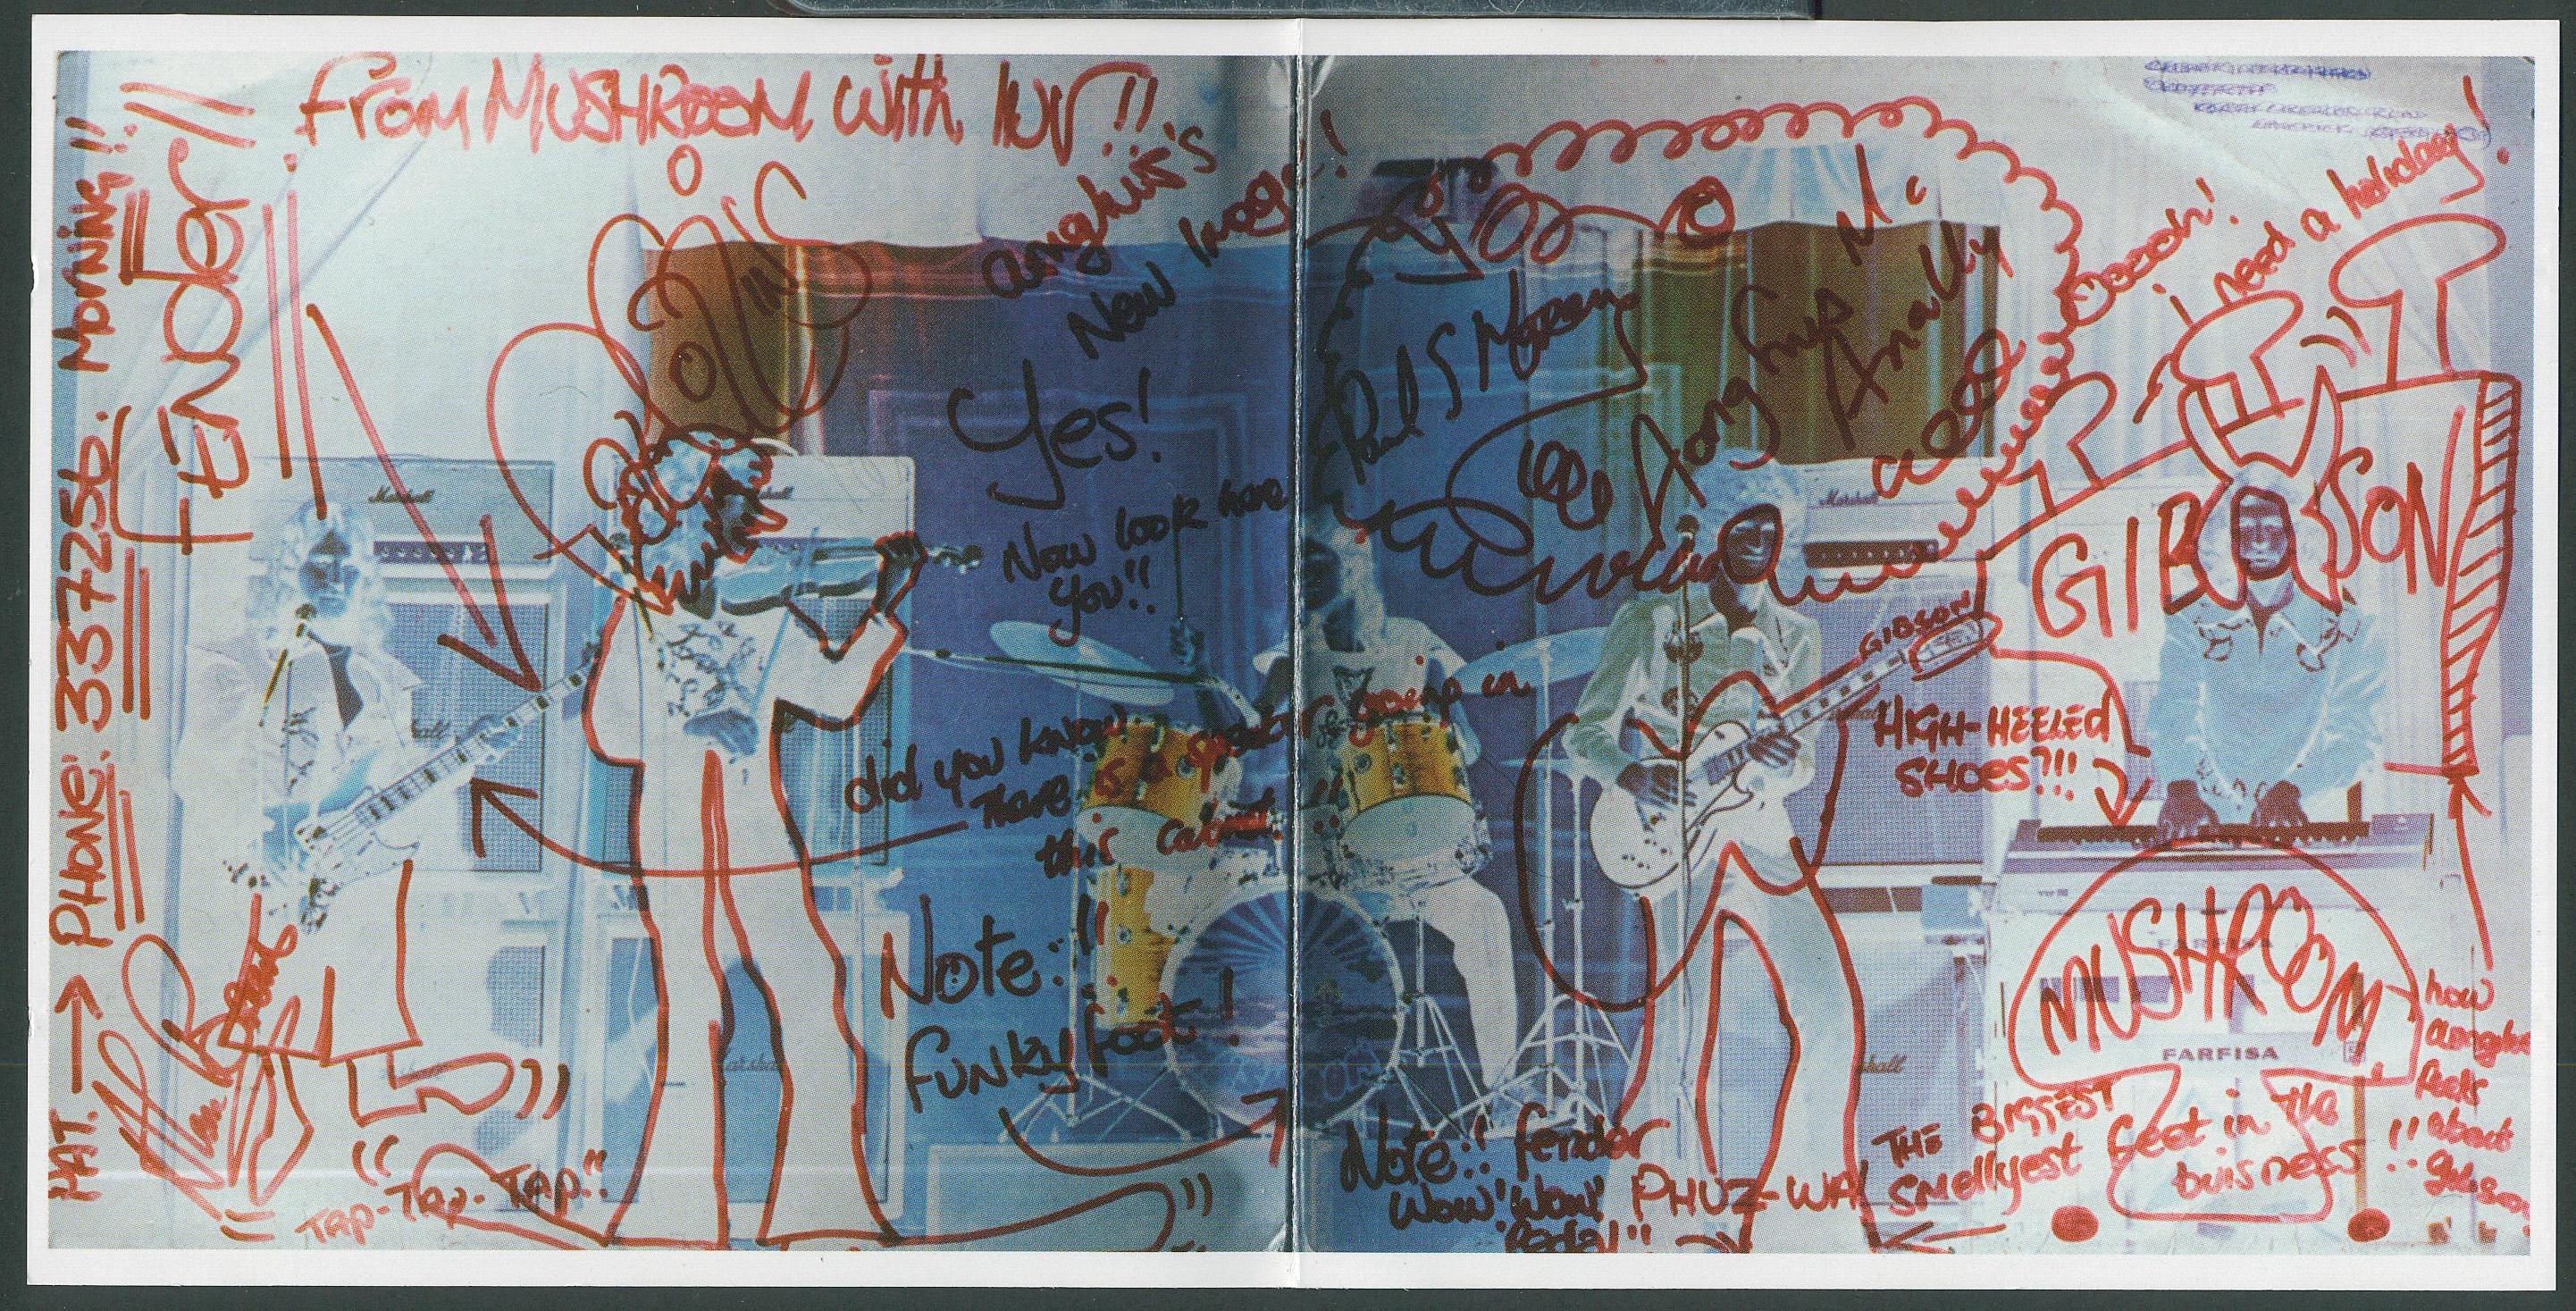 From MUSHROOM with luv!!
PAT. → PHONE: 337256. Morning!!
FENDER!!
aonghus's
New Image!
Yes!
Now look here
you!!
did you know
there is a speaker going in
this cabinet!!
Note:!!
FUNKY foot!
"TAP-TAP-TAP"!!
Alan Brown
Paul S Morean
Aonghus Mc
Anally
Oooh! i need a holiday!
GIBSON
GIBSON
HIGH-HEELED
SHOES?!!
MUSHROOM
FARFISA
FARFISA
Marshall
Marshall
Marshall
THE BIGGEST
SMellyest feet in the
buisness!!
Note!! fender
WOW WOW PHUZ-WA
Pedal!!
how
aonghus
feels
about
gibson